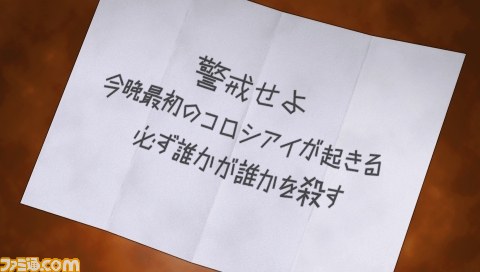 警戒せよ
今晩最初のコロシアイが起きる
必ず誰かが誰かを殺す
ファミ通.com